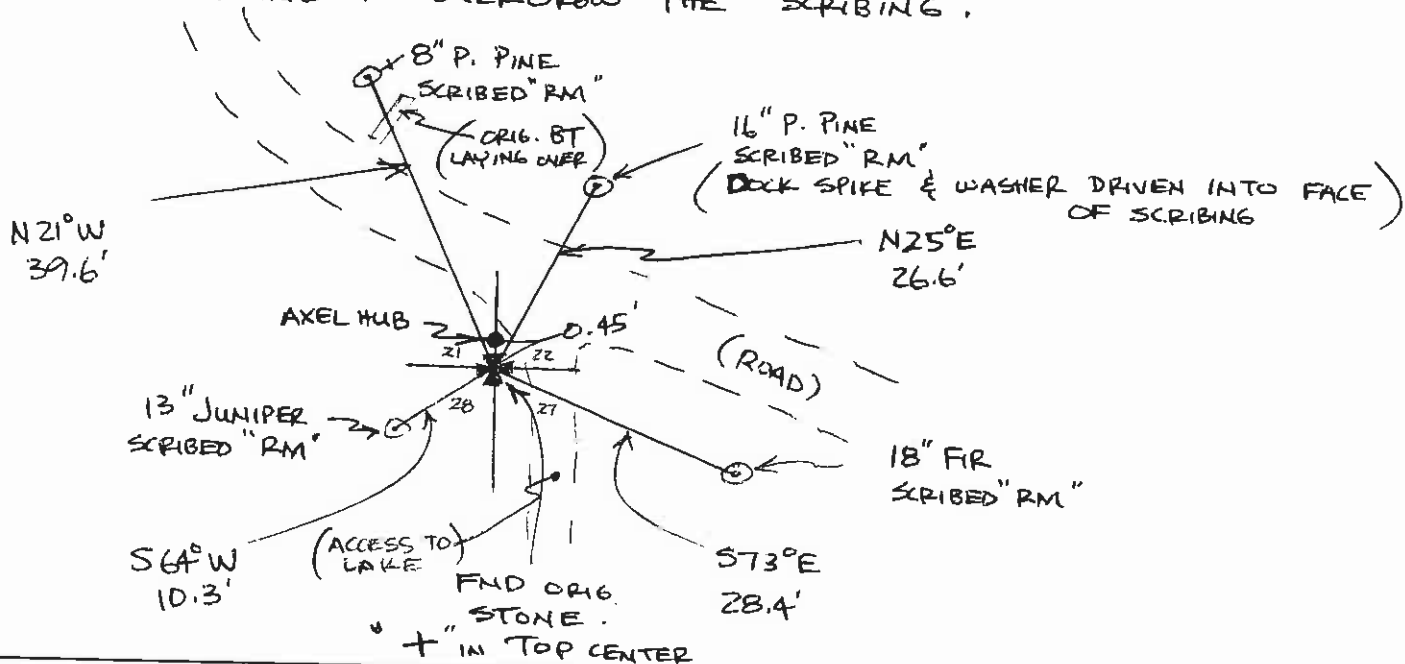 OVERGROW THE SCRIBING.
8" P. PINE
SCRIBED "RM"
(ORIG. BT
LAYING OVER)
16" P. PINE
SCRIBED "RM"
(DOCK SPIKE & WASHER DRIVEN INTO FACE
OF SCRIBING)
N21°W
39.6'
N25°E
26.6'
AXEL HUB
0.45'
21
22
(ROAD)
13" JUNIPER
SCRIBED "RM"
28
27
18" FIR
SCRIBED "RM"
S64°W
10.3'
(ACCESS TO
LAKE)
S73°E
28.4'
FND ORIG.
STONE.
"+" IN TOP CENTER